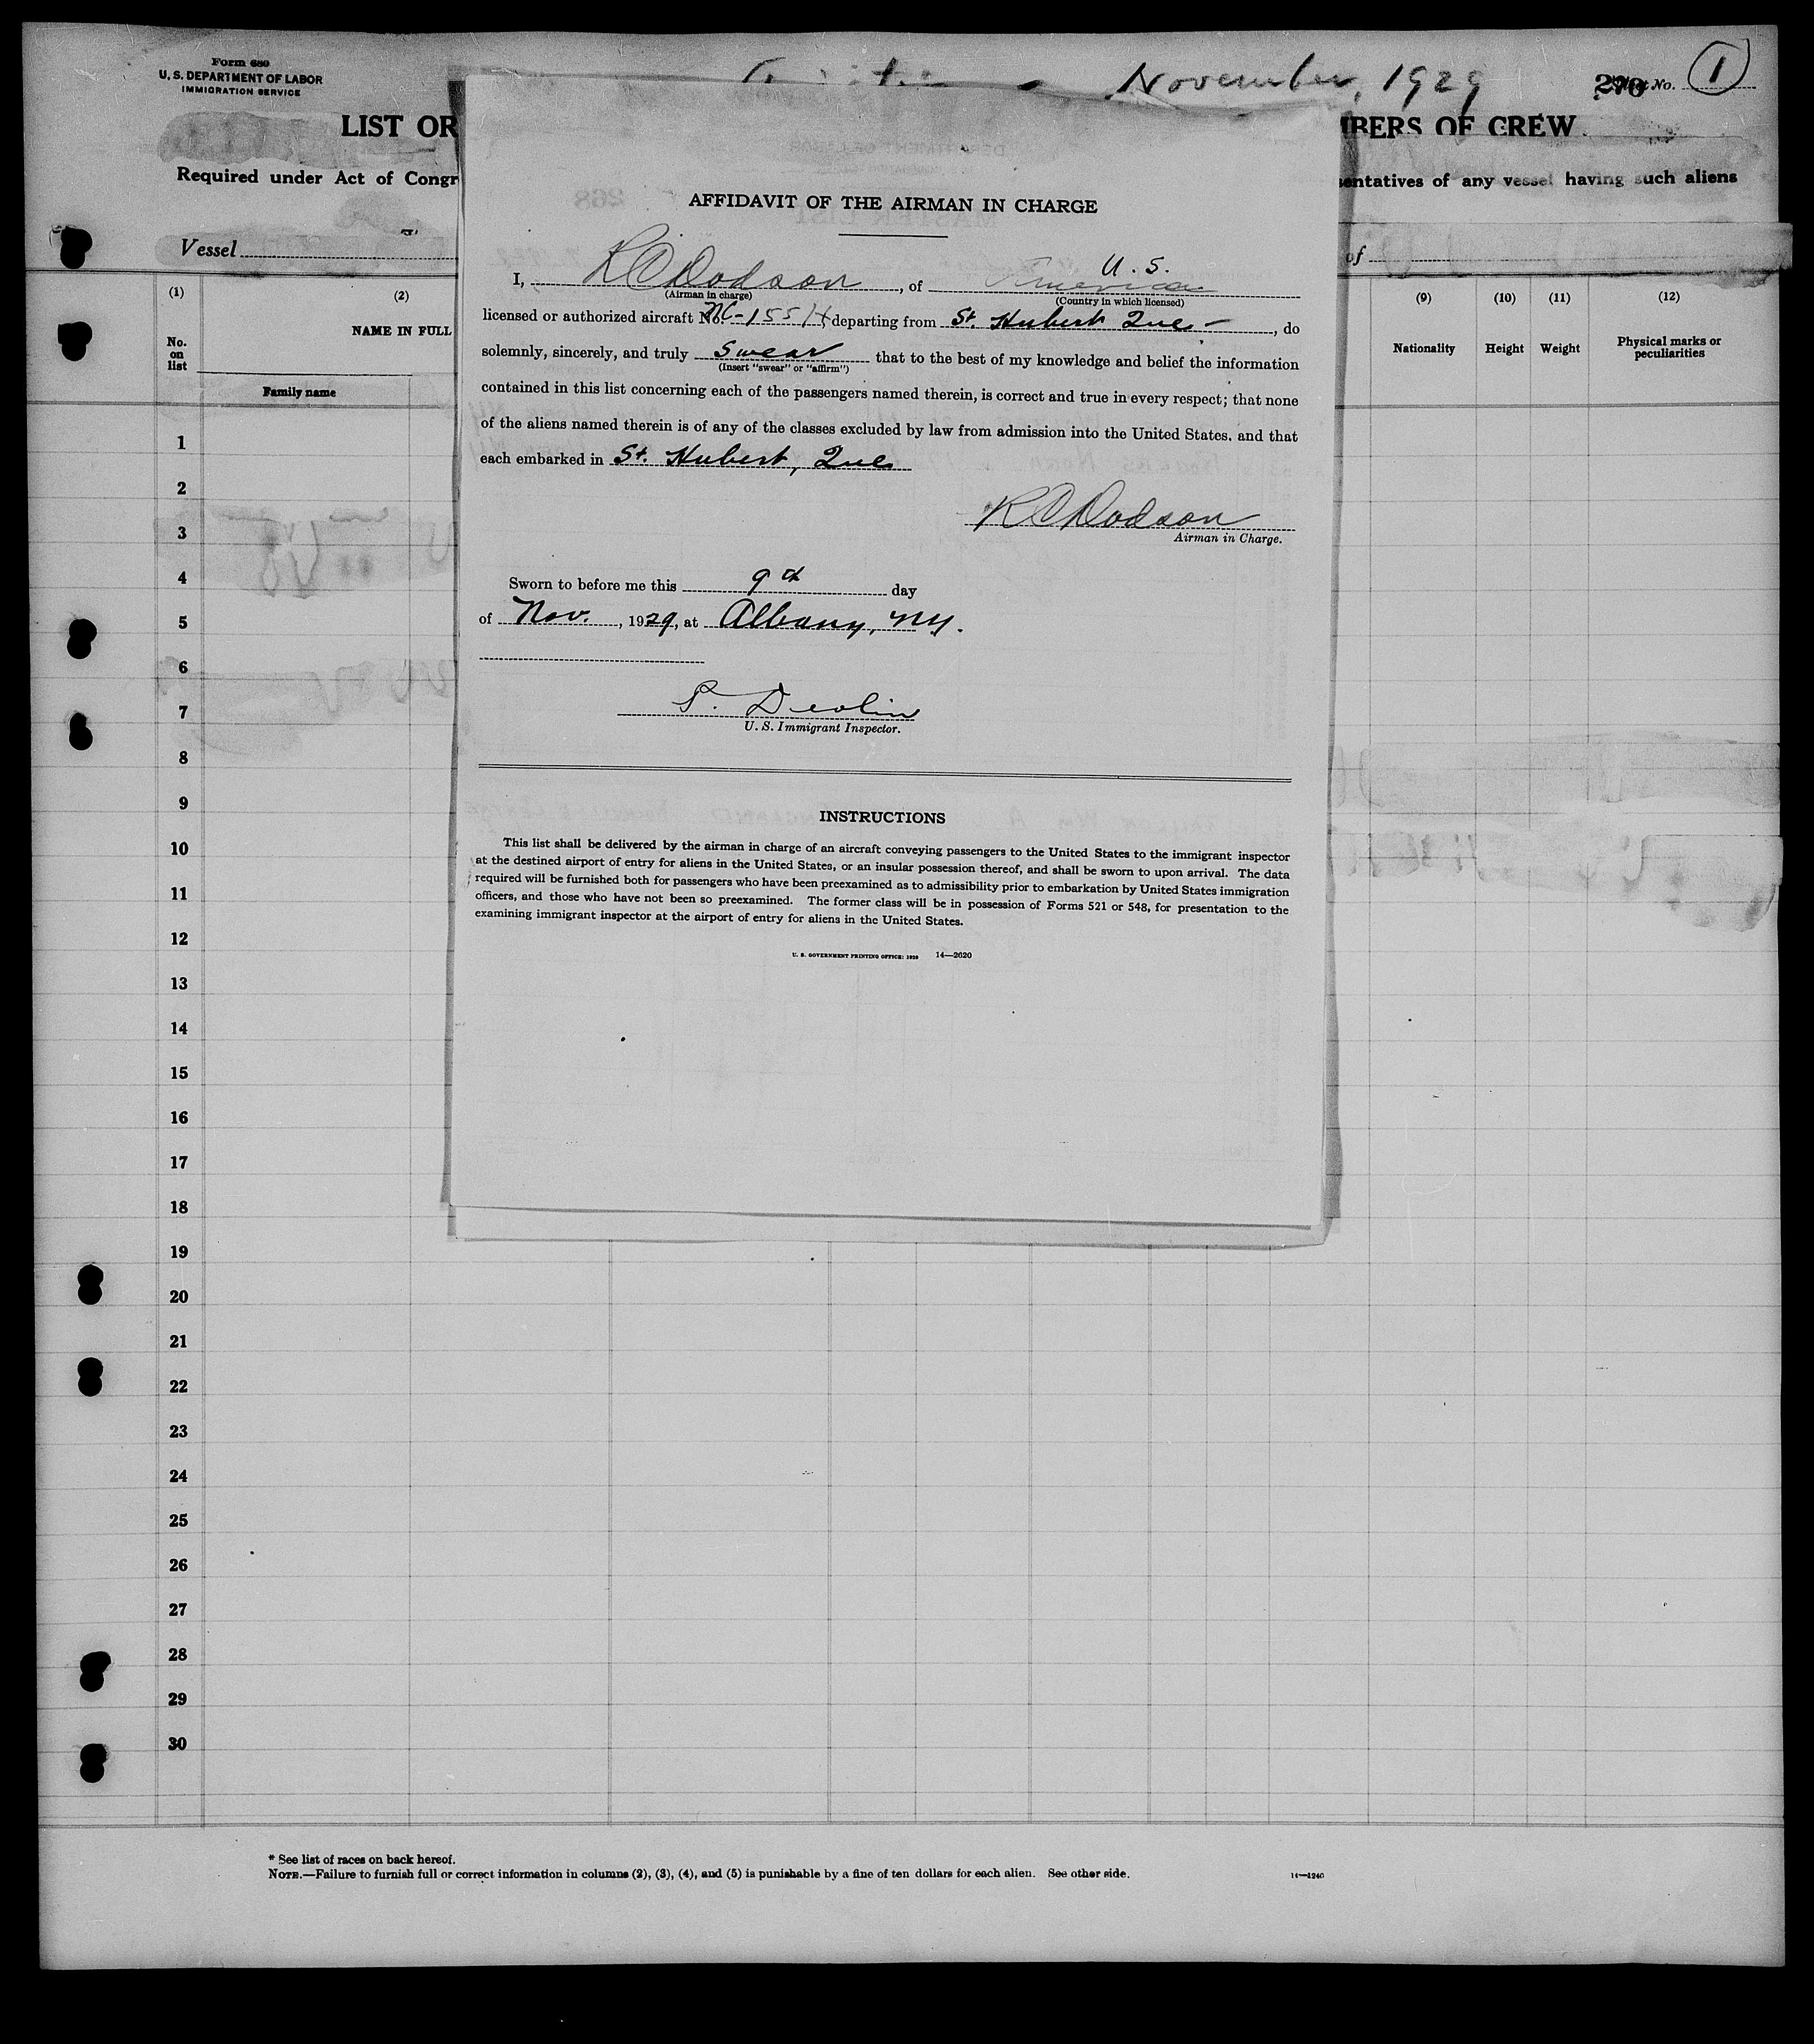 Form 680
U. S. DEPARTMENT OF LABOR
IMMIGRATION SERVICE
November, 1929
270
No. 1
LIST OR
MBERS OF CREW
Required under Act of Congr
sentatives of any vessel having such aliens
Vessel
of
(1)
(2)
(9)
(10)
(11)
(12)
No.
on
list
NAME IN FULL
Family name
Nationality
Height
Weight
Physical marks or
peculiarities
AFFIDAVIT OF THE AIRMAN IN CHARGE
U. S.
I, R C Dodson, of American
(Airman in charge)
(Country in which licensed)
licensed or authorized aircraft No. NC-155H, departing from St. Hubert Que -, do
solemnly, sincerely, and truly swear that to the best of my knowledge and belief the information
(Insert "swear" or "affirm")
contained in this list concerning each of the passengers named therein, is correct and true in every respect; that none
of the aliens named therein is of any of the classes excluded by law from admission into the United States, and that
each embarked in St. Hubert, Que
R C Dodson
Airman in Charge.
Sworn to before me this 9th day
of Nov., 1929, at Albany, NY.
P. Devlin
U. S. Immigrant Inspector.
INSTRUCTIONS
This list shall be delivered by the airman in charge of an aircraft conveying passengers to the United States to the immigrant inspector
at the destined airport of entry for aliens in the United States, or an insular possession thereof, and shall be sworn to upon arrival. The data
required will be furnished both for passengers who have been preexamined as to admissibility prior to embarkation by United States immigration
officers, and those who have not been so preexamined. The former class will be in possession of Forms 521 or 548, for presentation to the
examining immigrant inspector at the airport of entry for aliens in the United States.
U. S. GOVERNMENT PRINTING OFFICE: 1929 14—2620
1
2
3
4
5
6
7
8
9
10
11
12
13
14
15
16
17
18
19
20
21
22
23
24
25
26
27
28
29
30
* See list of races on back hereof.
NOTE.—Failure to furnish full or correct information in columns (2), (3), (4), and (5) is punishable by a fine of ten dollars for each alien. See other side.
14—1240